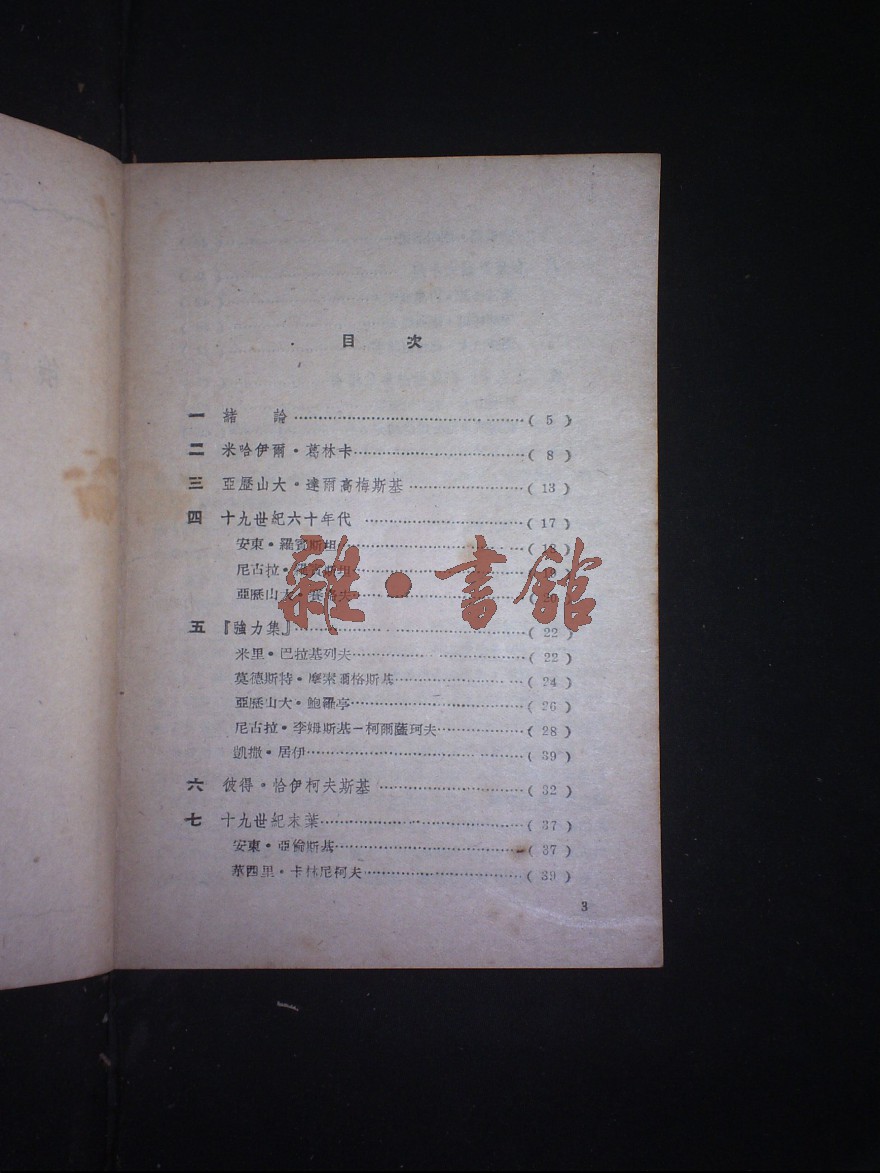 目 次
一 諸 論 ………………………… ( 5 )
二 米哈伊爾·葛林卡 ………………………… ( 8 )
三 亞歷山大·達爾高梅斯基 ………………………… ( 13 )
四 十九世紀六十年代 ………………………… ( 17 )
安東·羅賓斯坦 ………………………… ( 18 )
尼古拉·羅賓斯坦 …………………………
亞歷山大·賽洛夫 …………………………
雜·書館
五 『強力集』 ………………………… ( 22 )
米里·巴拉基列夫 ………………………… ( 22 )
莫德斯特·摩索爾格斯基 ………………………… ( 24 )
亞歷山大·鮑羅亭 ………………………… ( 26 )
尼古拉·李姆斯基－柯爾薩珂夫 ………………………… ( 28 )
凱撒·居伊 ………………………… ( 39 )
六 彼得·恰伊柯夫斯基 ………………………… ( 32 )
七 十九世紀末葉 ………………………… ( 37 )
安東·亞倫斯基 ………………………… ( 37 )
華西里·卡林尼柯夫 ………………………… ( 39 )
3